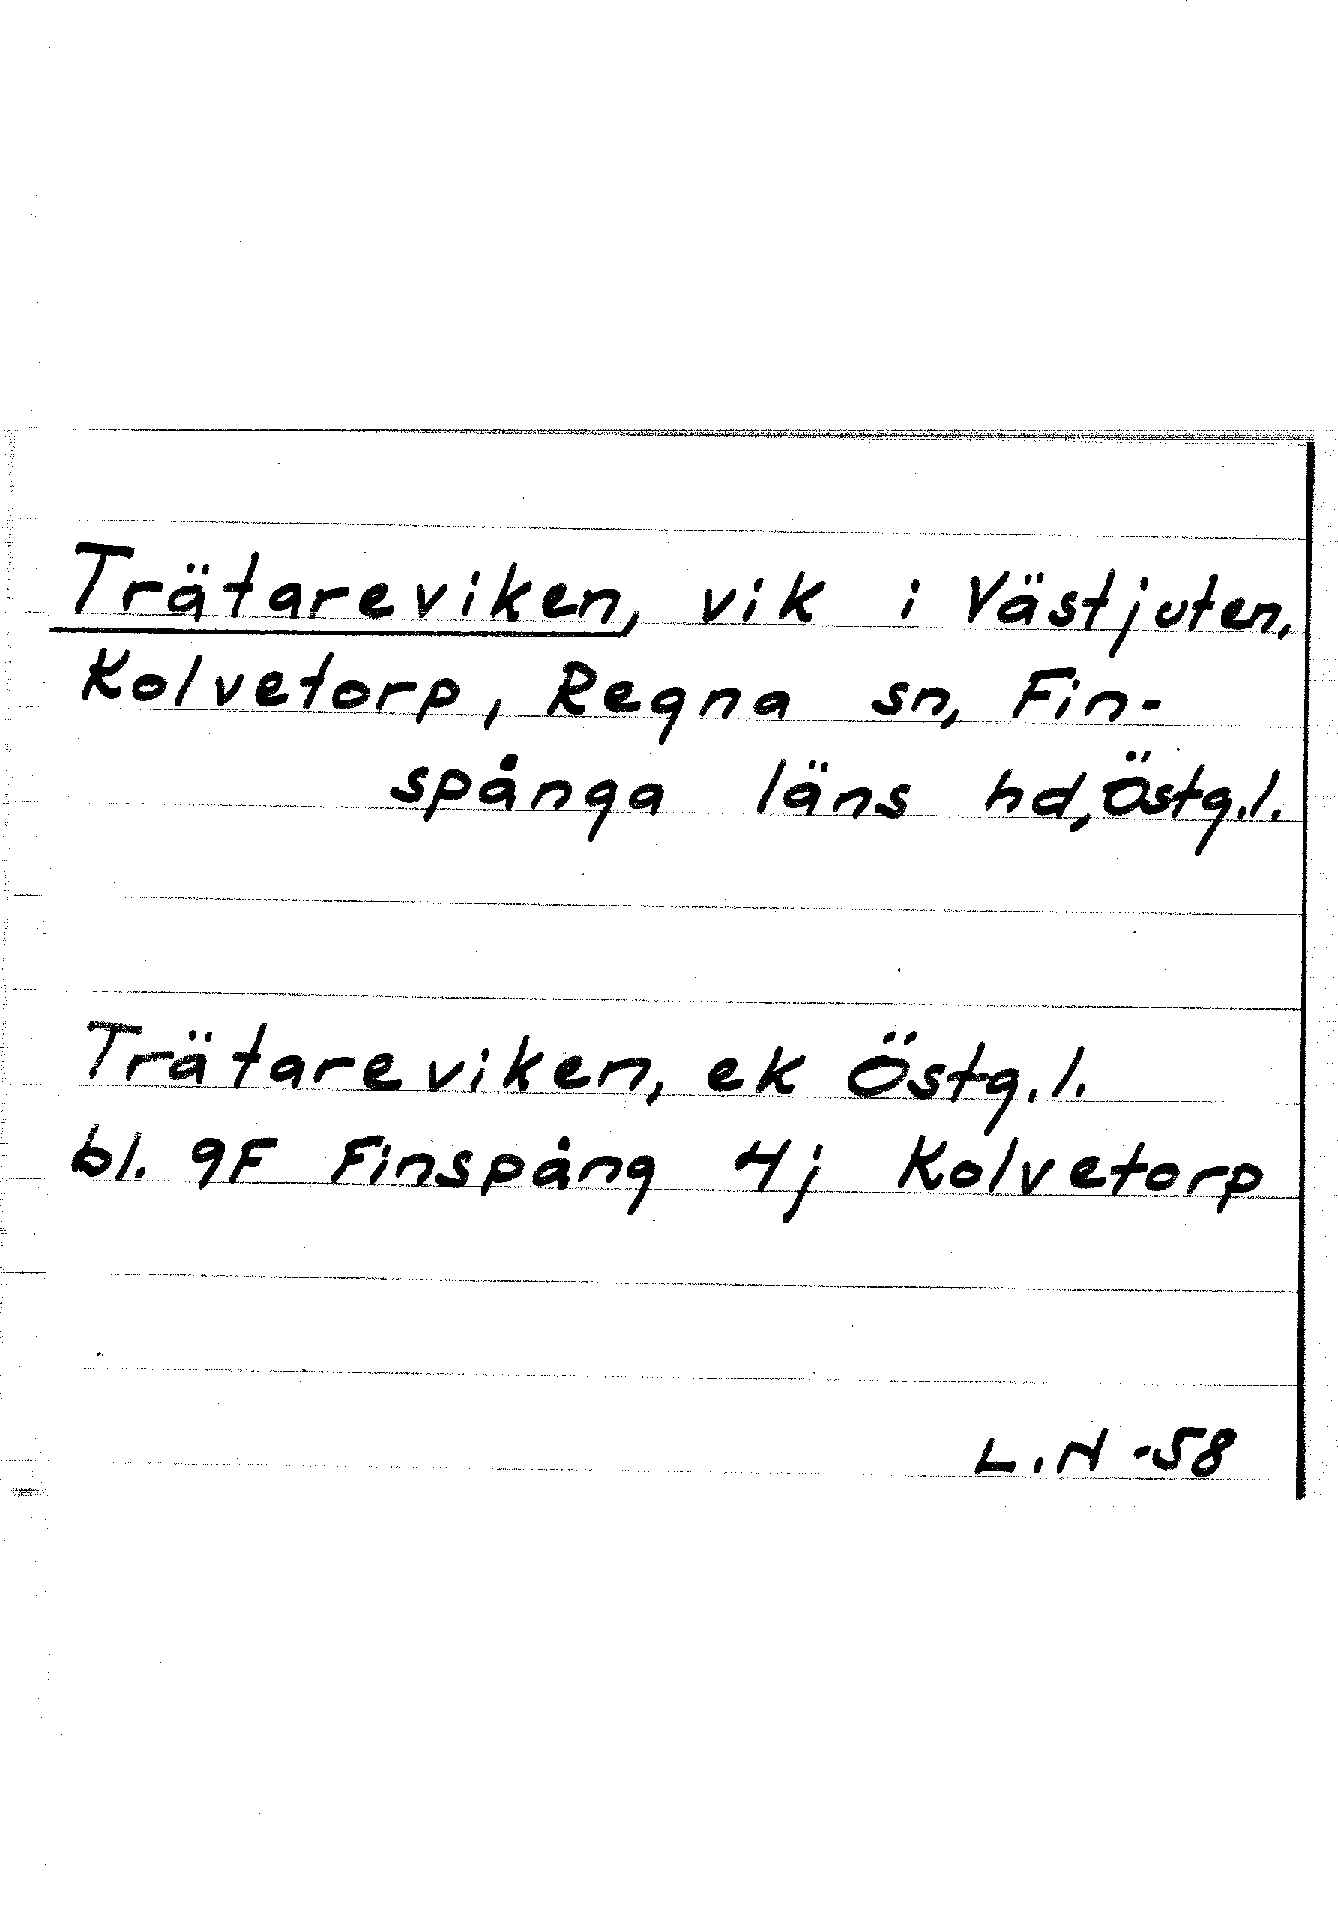 Trätareviken, vik i Västjuten,
Kolvetorp, Regna sn, Fin-
spånga läns hd, Östg.l.
Trätareviken, ek Östg.l.
bl. 9F Finspång 4j Kolvetorp
L.N -58